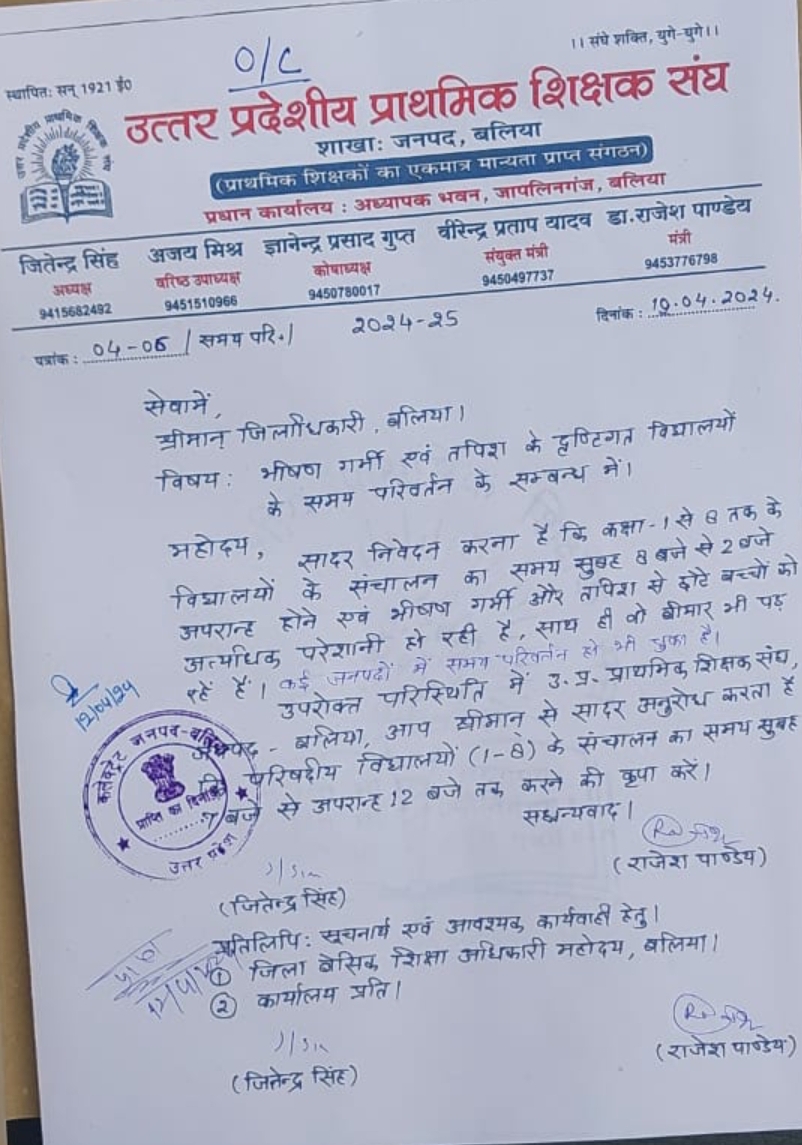 ।। संघे शक्ति, युगे-युगे।।
O/C
स्थापित: सन् 1921 ई०
उत्तर प्रदेशीय प्राथमिक शिक्षक संघ
शाखा: जनपद, बलिया
(प्राथमिक शिक्षकों का एकमात्र मान्यता प्राप्त संगठन)
प्रधान कार्यालय : अध्यापक भवन, जापलिनगंज, बलिया
जितेन्द्र सिंह अजय मिश्र ज्ञानेन्द्र प्रसाद गुप्त वीरेन्द्र प्रताप यादव डा.राजेश पाण्डेय
अध्यक्ष वरिष्ठ उपाध्यक्ष कोषाध्यक्ष संयुक्त मंत्री मंत्री
9415682492 9451510966 9450780017 9450497737 9453776798
पत्रांक : 04-05 / समय परि./ 2024-25 दिनांक : 10.04.2024.
सेवामें,
श्रीमान् जिलाधिकारी, बलिया।
विषय: भीषण गर्मी एवं तपिश के दृष्टिगत विद्यालयों
के समय परिवर्तन के सम्बन्ध में।
महोदय, सादर निवेदन करना है कि कक्षा-1 से 8 तक के
विद्यालयों के संचालन का समय सुबह 8 बजे से 2 बजे
अपरान्ह होने एवं भीषण गर्मी और तपिश से छोटे बच्चों को
अत्यधिक परेशानी हो रही है, साथ ही वो बीमार भी पड़
रहें हैं। कई जनपदों में समय परिवर्तन हो भी चुका है।
उपरोक्त परिस्थिति में उ.प्र. प्राथमिक शिक्षक संघ,
जनपद - बलिया, आप श्रीमान से सादर अनुरोध करता है
कि परिषदीय विद्यालयों (1-8) के संचालन का समय सुबह
7 बजे से अपरान्ह 12 बजे तक करने की कृपा करें।
सधन्यवाद।
12/04/24
कलेक्ट्रेट जनपद-बलिया
प्राप्ति का दिनांक
उत्तर प्रदेश
(जितेन्द्र सिंह) (राजेश पाण्डेय)
प्रतिलिपि: सूचनार्थ एवं आवश्यक कार्यवाही हेतु।
① जिला बेसिक शिक्षा अधिकारी महोदय, बलिया।
② कार्यालय प्रति।
(जितेन्द्र सिंह) (राजेश पाण्डेय)